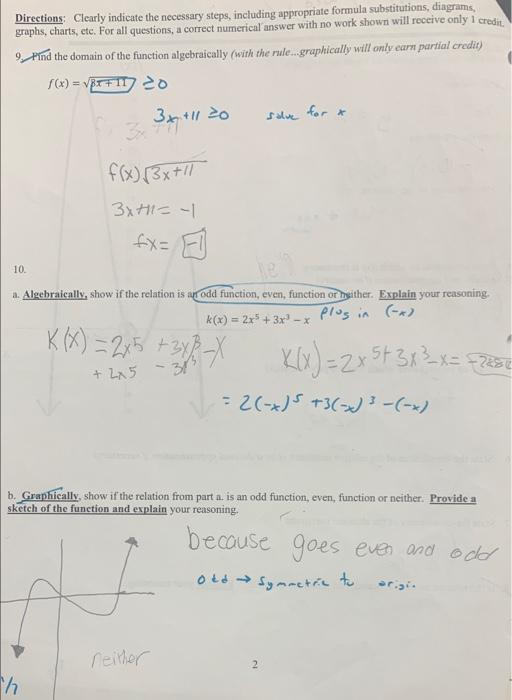 Directions: Clearly indicate the necessary steps, including appropriate formula substitutions, diagrams,
graphs, charts, etc. For all questions, a correct numerical answer with no work shown will receive only 1 credit.
9. Find the domain of the function algebraically (with the rule...graphically will only earn partial credit)
f(x) = √3x + 11 ≥0
3x+11 ≥0 solve for x
f(x)√3x+11
3x+11= -1
fx= -1
10.
a. Algebraically, show if the relation is an odd function, even, function or neither. Explain your reasoning.
k(x) = 2x⁵ + 3x³ – x plug in (-x)
K(x) = 2x5 + 3x3 - X
+ 2x5 - 3x3
K(x) = 2x5 + 3x3 - x =
= 2(-x)5 +3(-x)3 -(-x)
b. Graphically, show if the relation from part a. is an odd function, even, function or neither. Provide a
sketch of the function and explain your reasoning.
because goes even and odd
odd → symmetric to origin
neither
2